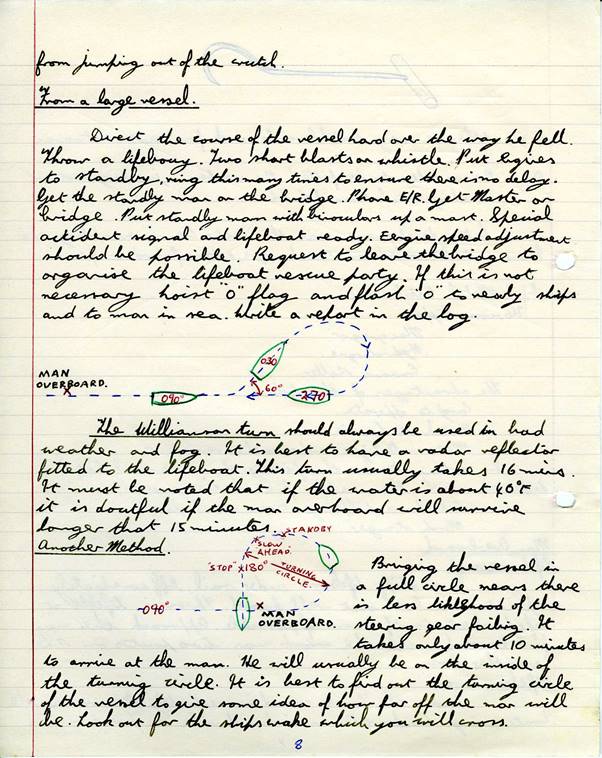 from jumping out of the crutch.
From a large vessel.
Direct the course of the vessel hard over the way he fell.
Throw a lifebouy. Two short blasts on whistle. Put Engines
to standby, ring this many times to ensure there is no delay.
Get the standby man on the bridge. Phone E/R. Get Master on
bridge. Put standby man with binoculars up a mast. Special
accident signal and lifeboat ready. Eengine speed adjustment
should be possible. Request to leave the bridge to
organise the lifeboat rescue party. If this is not
necessary hoist "O" flag and flash "O" to nearby ships
and to man in sea. Write a report in the log.
MAN
OVERBOARD.
X
090°
030
60°
270
The Williamson turn should always be used in bad
weather and fog. It is best to have a radar reflector
fitted to the lifeboat. This turn usually takes 16 mins.
It must be noted that if the water is about 40°F
it is doutful if the man overboard will survive
longer that 15 minutes.
Another Method.
STANDBY
SLOW
AHEAD.
"STOP" X 180°
TURNING
CIRCLE.
090°
X MAN
OVERBOARD.
Bringing the vessel in
a full circle means there
is less liklehood of the
steering gear failing. It
takes only about 10 minutes
to arrive at the man. He will usually be on the inside of
the turning circle. It is best to find out the turning circle
of the vessel to give some idea of how far off the man will
be. Look out for the ships wake which you will cross.
8